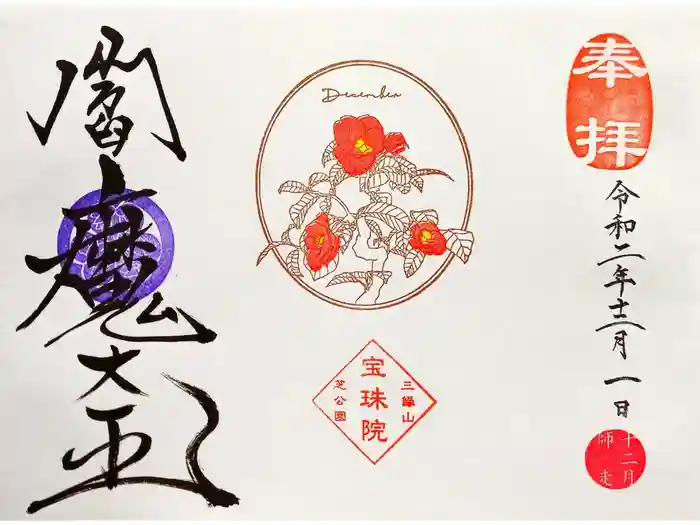 奉拝
令和二年十二月一日
十二月
師走
December
三縁山
宝珠院
芝公園
閻魔大王